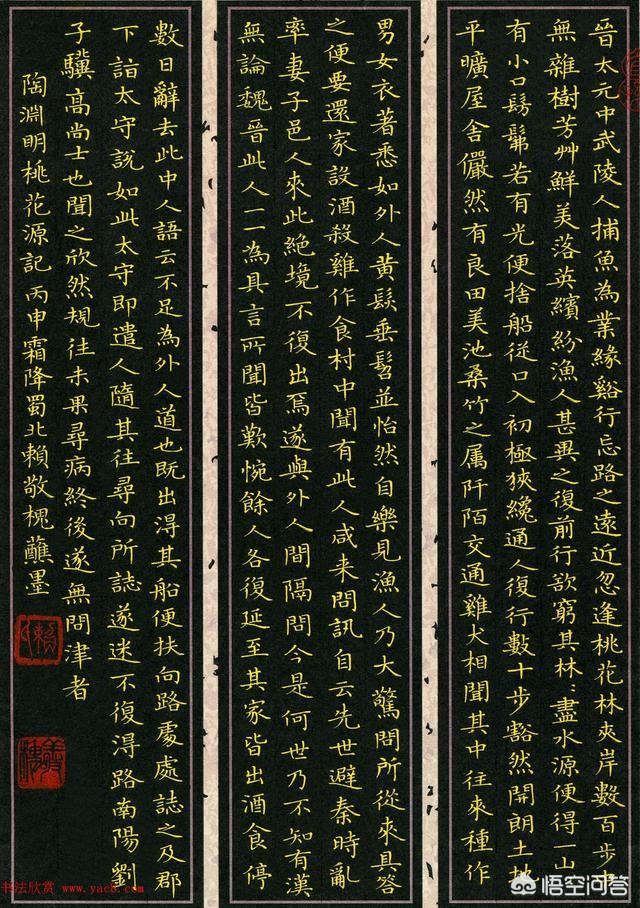 晉太元中武陵人捕魚為業緣谿行忘路之遠近忽逢桃花林夾岸數百步
無雜樹芳艸鮮美落英繽紛漁人甚異之復前行欲窮其林〻盡水源便得一山
有小口髣髴若有光便捨船從口入初極狹纔通人復行數十步豁然開朗土地
平曠屋舍儼然有良田美池桑竹之属阡陌交通雞犬相聞其中往來種作
男女衣著悉如外人黄髮垂髫並怡然自樂見漁人乃大驚問所從來具答
之便要還家設酒殺雞作食村中聞有此人咸来問訊自云先世避秦時亂
率妻子邑人來此絶境不復出焉遂與外人間隔問今是何世乃不知有漢
無論魏晉此人一一為具言所聞皆歎惋餘人各復延至其家皆出酒食停
數日辭去此中人語云不足為外人道也既出得其船便扶向路處處誌之及郡
下詣太守說如此太守即遣人隨其往尋向所誌遂迷不復得路南陽劉
子驥高尚士也聞之欣然規往未果尋病終後遂無問津者
陶淵明桃花源記丙申霜降蜀北賴敬槐蘸墨
书法欣赏 www.yac8.com
悟空问答